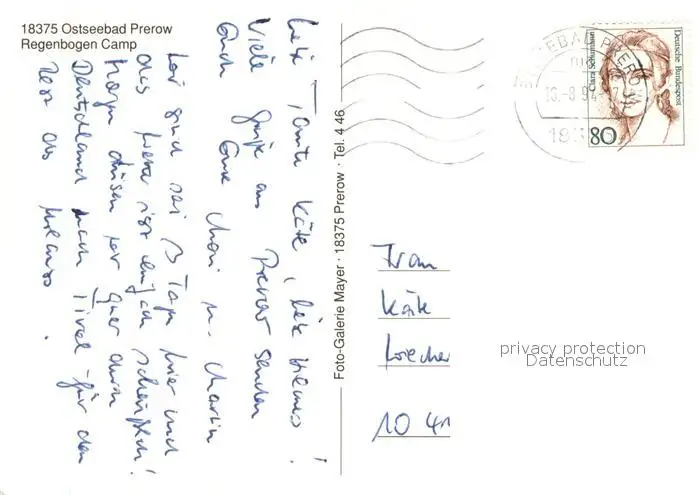 18375 Ostseebad Prerow
Regenbogen Camp
Liebe Tante Käte, liebe
Viele Grüße aus Prerow senden
Euch Eure u. Martin
Wir sind seit 3 Tagen hier und
das Wetter ist einfach scheußlich!
Morgen düsen wir quer durch
Deutschland nach Tirol - für den
Rest des
Foto-Galerie Mayer · 18375 Prerow · Tel. 4 46
Deutsche Bundespost
Clara Schumann
80
Frau
Käte
10 41
privacy protection
Datenschutz